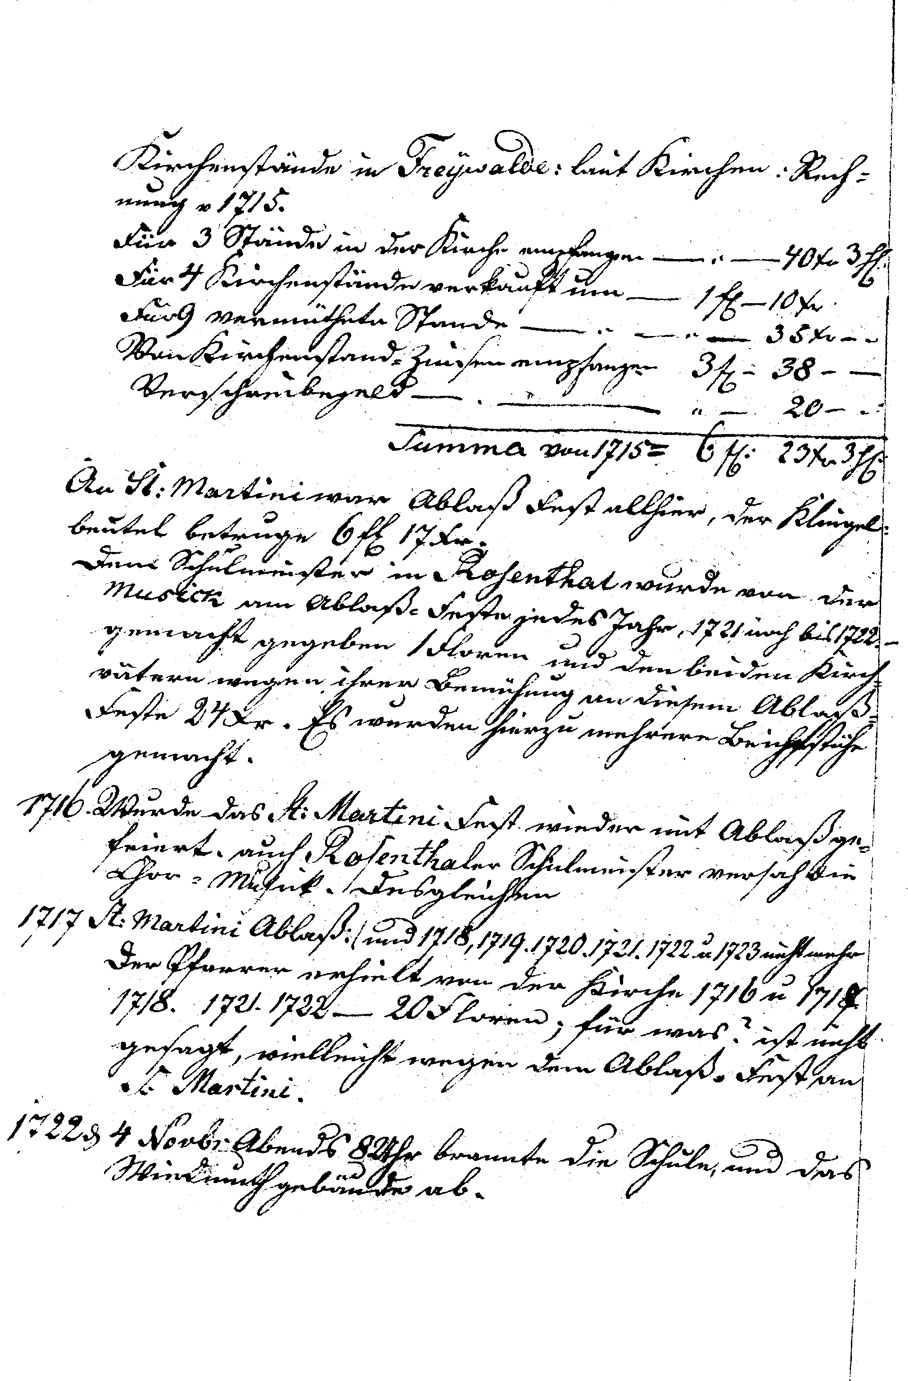 Kirchenstände in Freÿwalde: laut Kirchen: Rech=
nung v 1715.
Für 3 Stände in der Kirche empfangen — „ — 40 xr 3 hl:
Für 4 Kirchenstände verkauft um — 1 fl — 10 xr
Für 9 vermüthete Stande — „ — „ — 35 xr – „
Von Kirchenstand=Zinsen empfangen 3 fl – 38 – —
Verschreibegeld — . — „ — 20 – „
Summa von 1715 = 6 fl: 23 xr 3 hl:
An St: Martini war Ablaß Fest allhier, der Klingel=
beutel betruge 6 fl 17 Xr.
Dem Schulmeister in Rosenthal wurde von der
Musick am Ablaß=Feste jedes Jahr, 1721 noch bis 1722.–
gemacht gegeben 1 Floren und den beiden Kirch=
vätern wegen ihrer Bemühung an diesem Ablaß=
Feste 24 Xr. Es wurden hierzu mehrere Beichtstühle
gemacht.
1716. Wurde das St: Martini Fest wieder mit Ablaß ge=
feiert. auch Rosenthaler Schulmeister versah die
Chor=Musick. Desgleichen
1717 St: Martini Ablaß:/ und 1718, 1719. 1720. 1721. 1722 u 1723 nicht mehr
Der Pfarrer erhielt von der Kirche 1716 u 1717
1718. 1721. 1722 — 20 Floren; für was? ist nicht
gesagt, vielleicht wegen dem Ablaß=Fest an
St: Martini.
1722 d 4 Novbr Abends 8 Uhr brannte die Schule, und das
Wiedmuthgebäude ab.